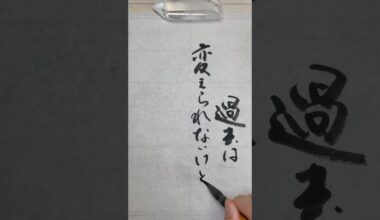 過去は
変えられないけど